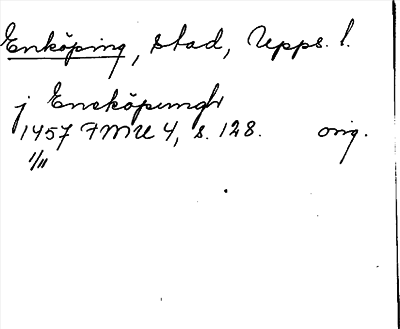 Enköping, stad, Upps. l.
j Eneköpungh
1457 FMU 4, s. 128. orig.
1/11